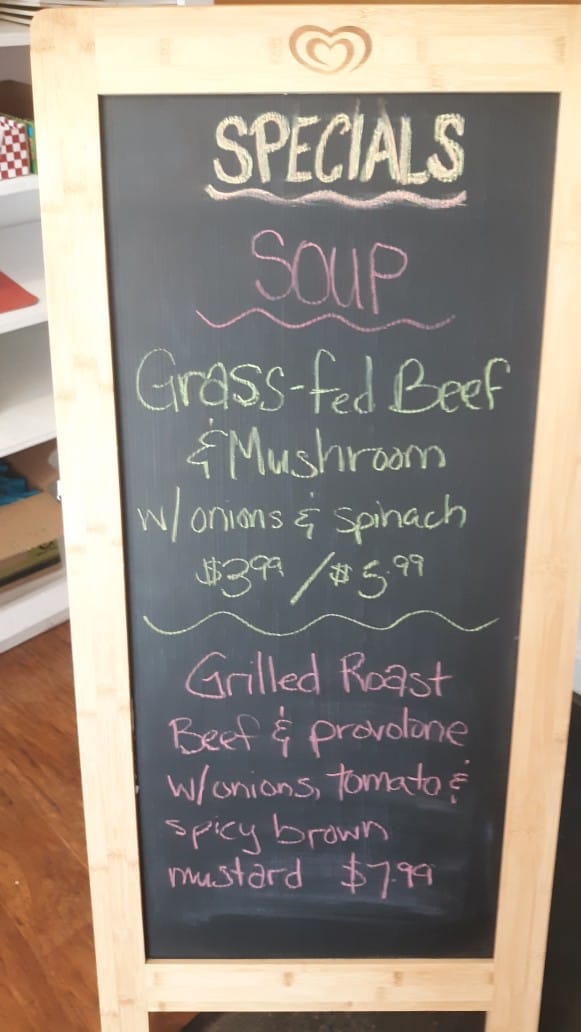 SPECIALS
SOUP
Grass-fed Beef
& Mushroom
w/ onions & spinach
$3.99 / $5.99
Grilled Roast
Beef & provolone
w/onions, tomato &
spicy brown
mustard $7.99